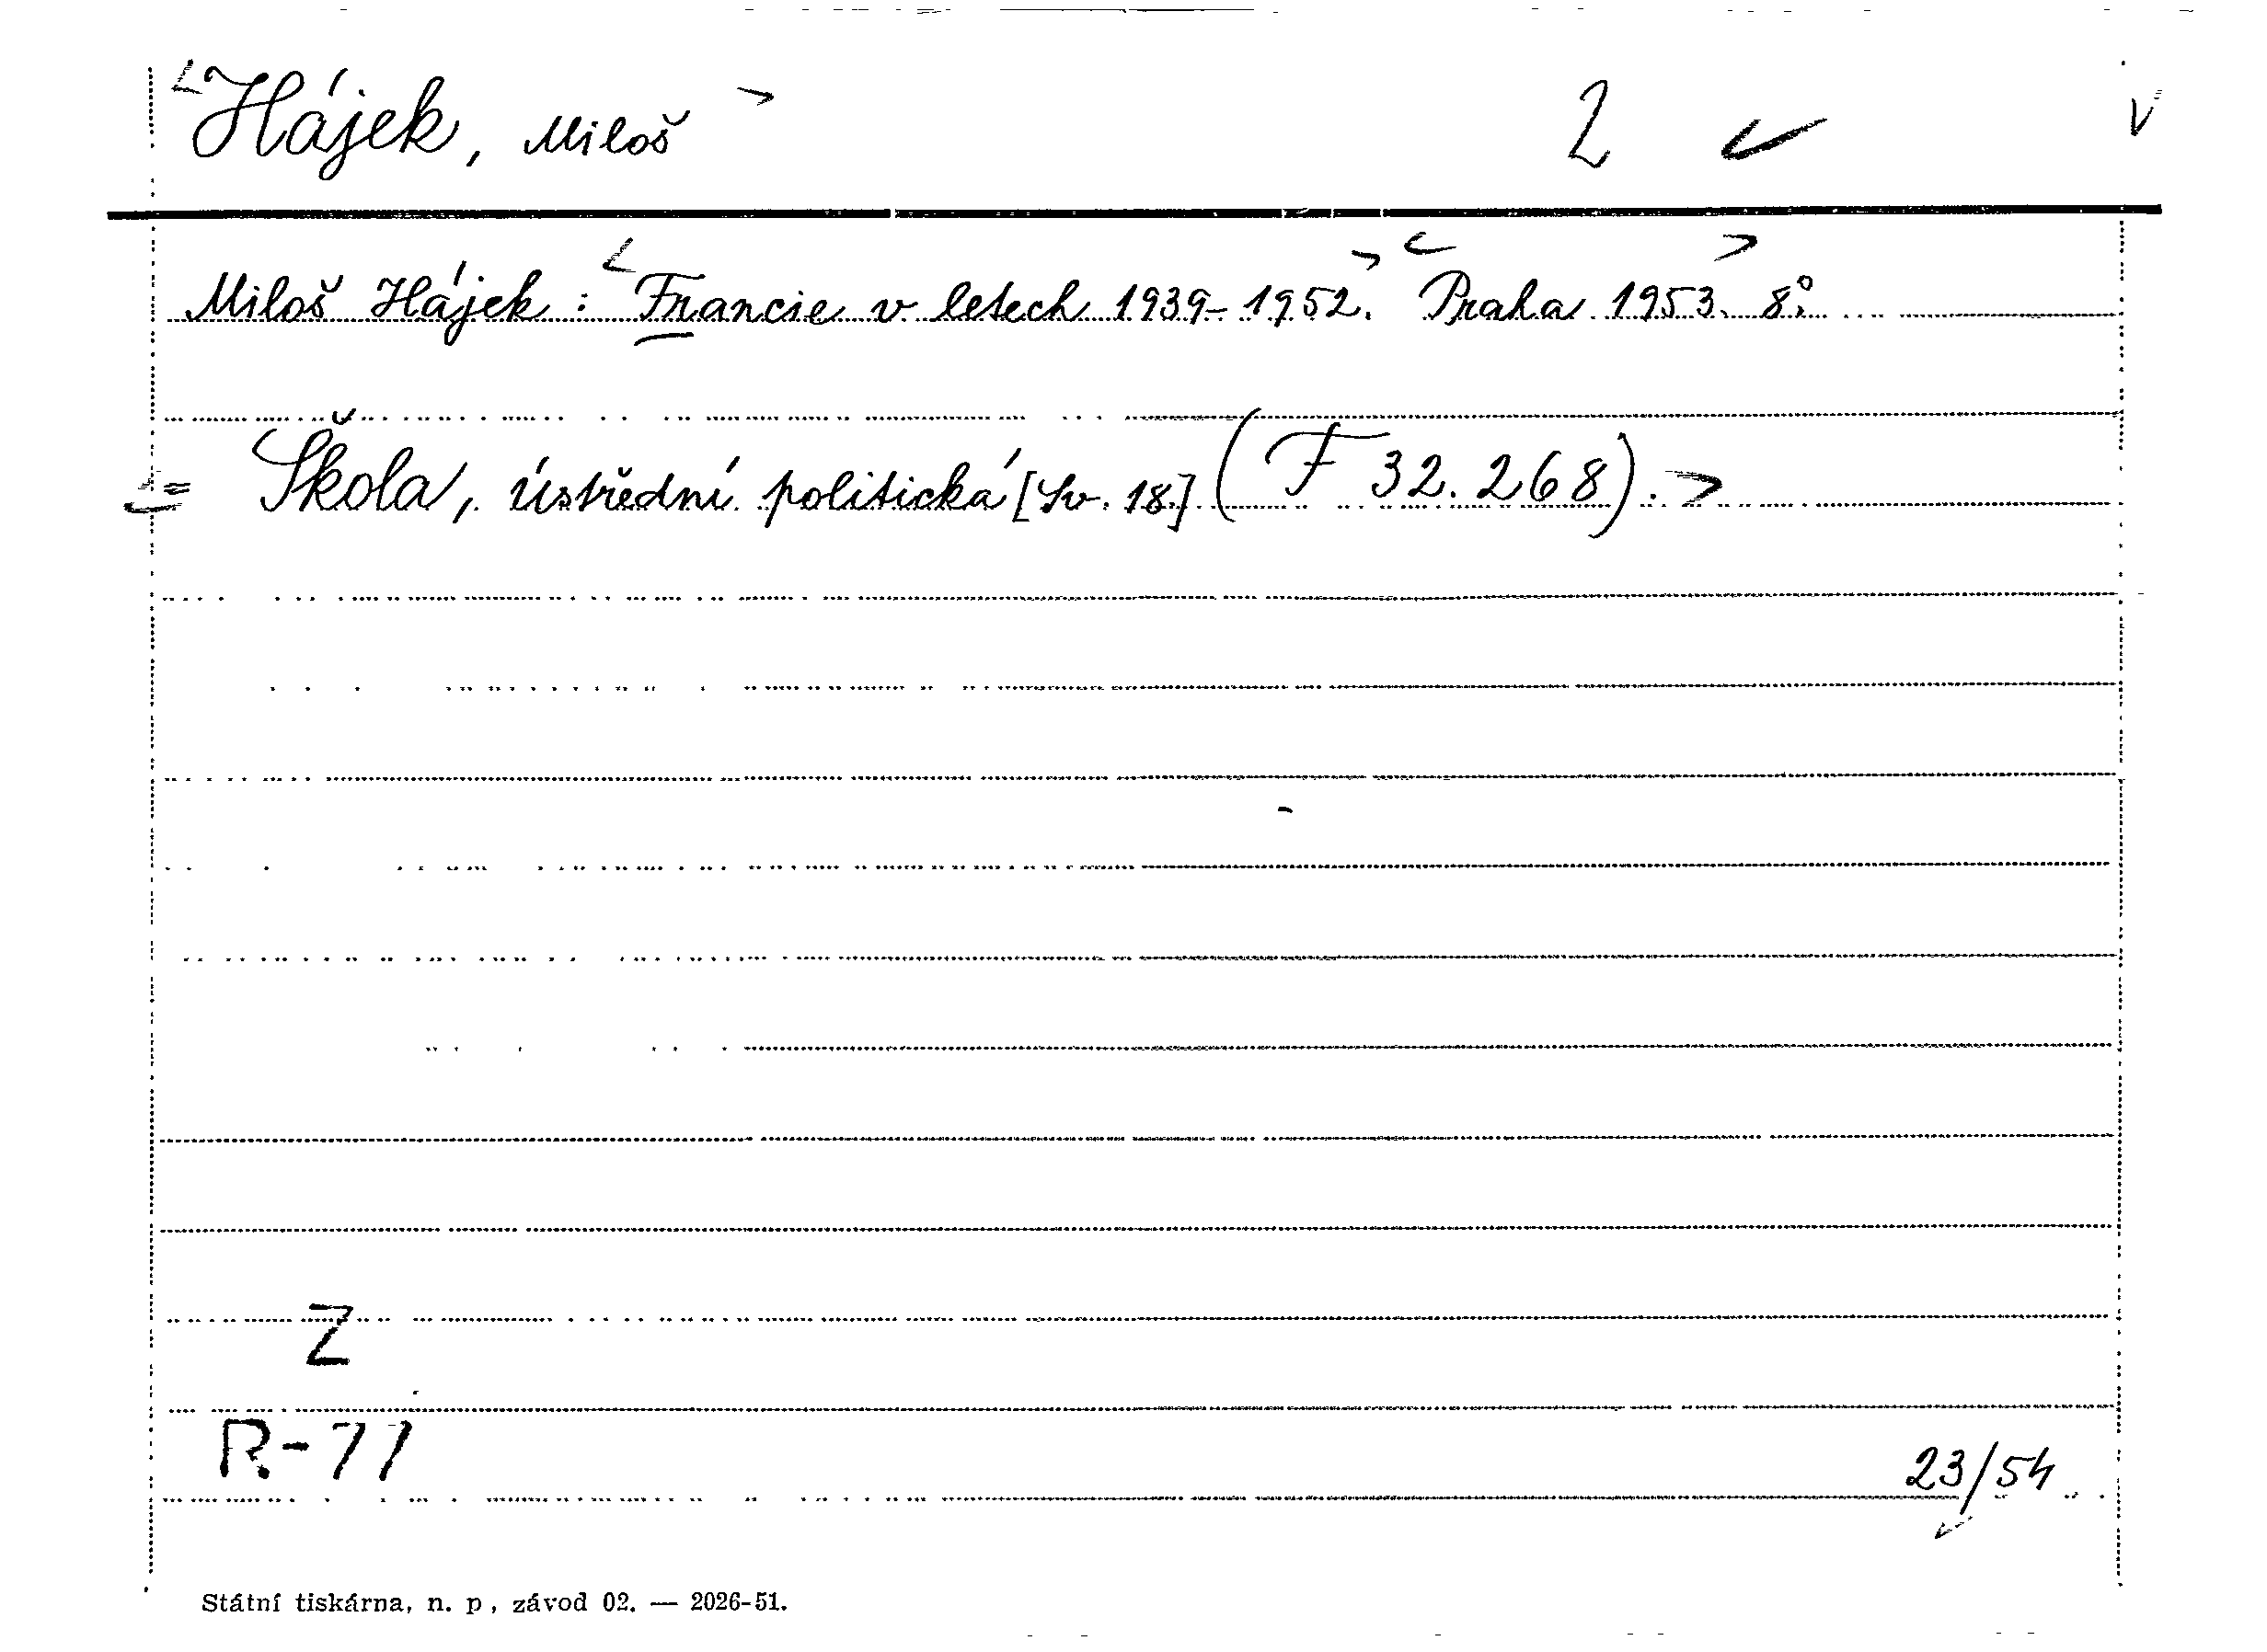 <Hájek, Miloš> 2 ✓ v
Miloš Hájek: <Francie v letech 1939-1952.> <Praha 1953.> 8°.
<= Škola, ústřední politická [Sv. 18.] (F 32.268).>
Z
R-77
23/54
Státní tiskárna, n. p, závod 02. — 2026-51.